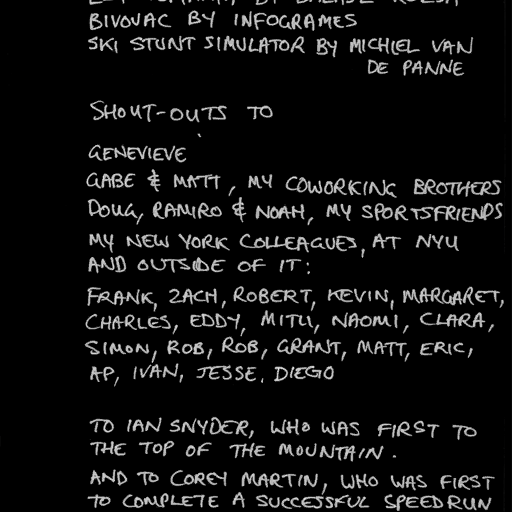 BIVOUAC BY INFOGRAMES
SKI STUNT SIMULATOR BY MICHIEL VAN
DE PANNE
SHOUT-OUTS TO
GENEVIEVE
GABE & MATT, MY COWORKING BROTHERS
DOUG, RAMIRO & NOAH, MY SPORTSFRIENDS
MY NEW YORK COLLEAGUES, AT NYU
AND OUTSIDE OF IT:
FRANK, ZACH, ROBERT, KEVIN, MARGARET,
CHARLES, EDDY, MITU, NAOMI, CLARA,
SIMON, ROB, ROB, GRANT, MATT, ERIC,
AP, IVAN, JESSE. DIEGO
TO IAN SNYDER, WHO WAS FIRST TO
THE TOP OF THE MOUNTAIN.
AND TO COREY MARTIN, WHO WAS FIRST
TO COMPLETE A SUCCESSFUL SPEEDRUN